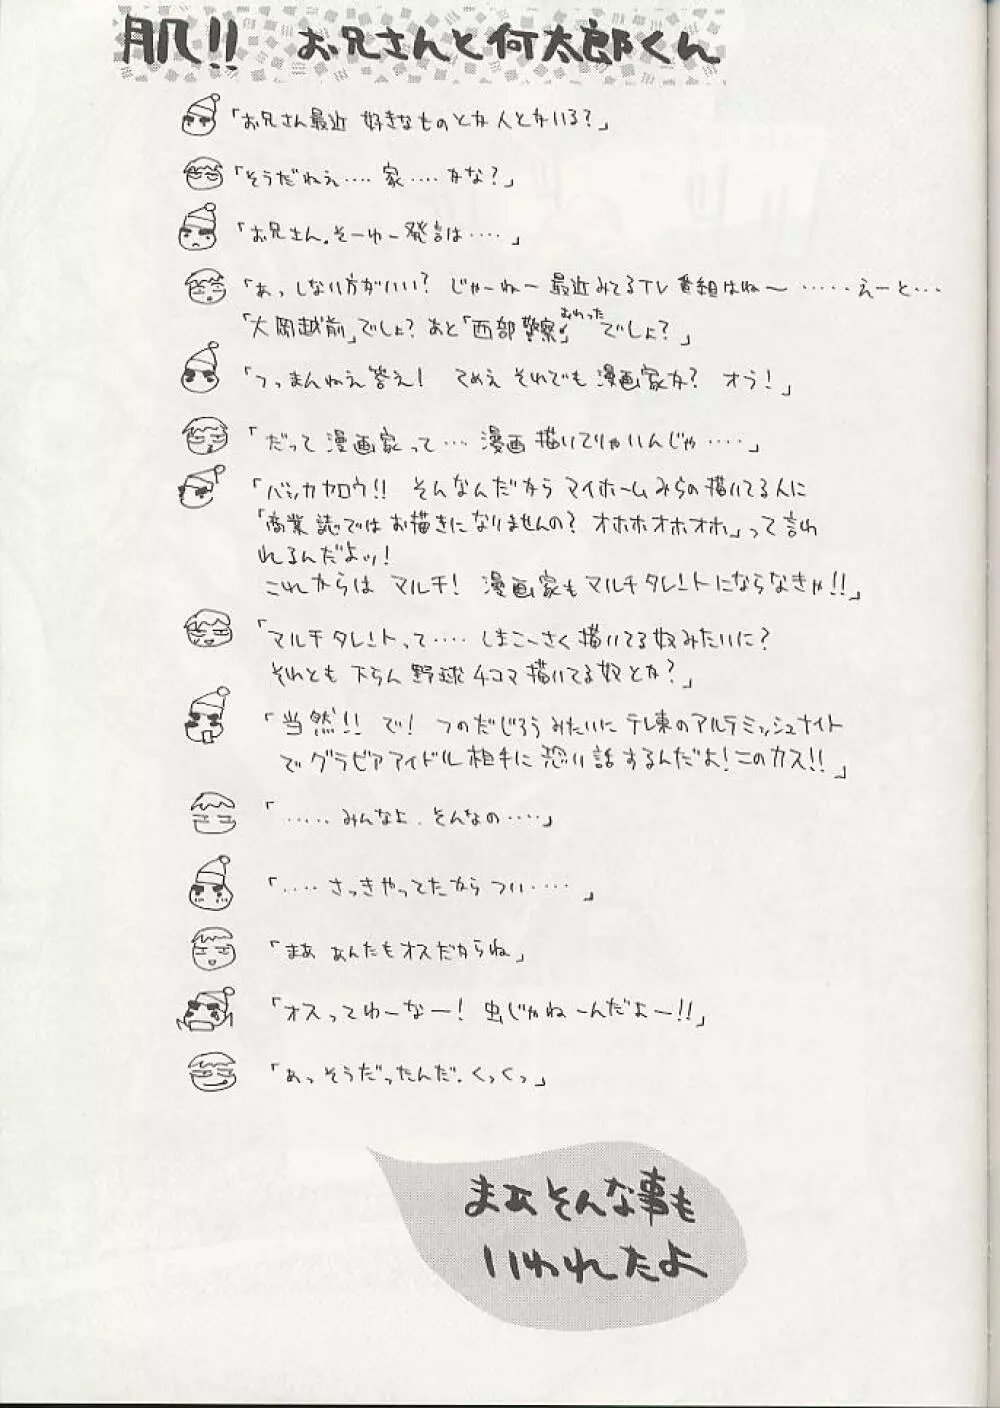 肌!! お兄さんと何太郎くん
「お兄さん最近 好きなものとか人とかいる?」
「そうだねえ‥‥ 家‥‥かな?」
「お兄さん.そーゆー発言は‥‥」
「あっしない方がいい? じゃーねー最近みてるTV番組はね〜 ‥‥‥えーと‥‥
「大岡越前」でしょ?あと「西部警察」おわった でしょ?」
「つっまんねえ答え! てめえ それでも漫画家か? オラ!」
「だって漫画家って‥‥ 漫画描いてりゃいいんじゃ‥‥」
「バッカヤロウ!! そんなんだから マイホームみらの描いてる人に
「商業誌ではお描きになりませんの? オホホオホオホ」って言わ
れるんだよッ!
これからは マルチ! 漫画家もマルチタレントにならなきゃ!!」
「マルチタレントって‥‥ しまこーさく描いてる奴みたいに?
それとも 下らん野球4コマ描いてる奴とか?」
「当然!! で! つのだじろうみたいに テレ東のアルテミッシュナイト
でグラビアアイドル相手に恐い話するんだよ!このカス!!」
「‥‥‥みんなよ.そんなの‥‥」
「‥‥さっきやってたから つい‥‥」
「まあ あんたもオスだからね」
「オスってゆーなー! 虫じゃねーんだよー!!」
「あっそうだったんだ.くっくっ」
まあそんな事も
いわれたよ